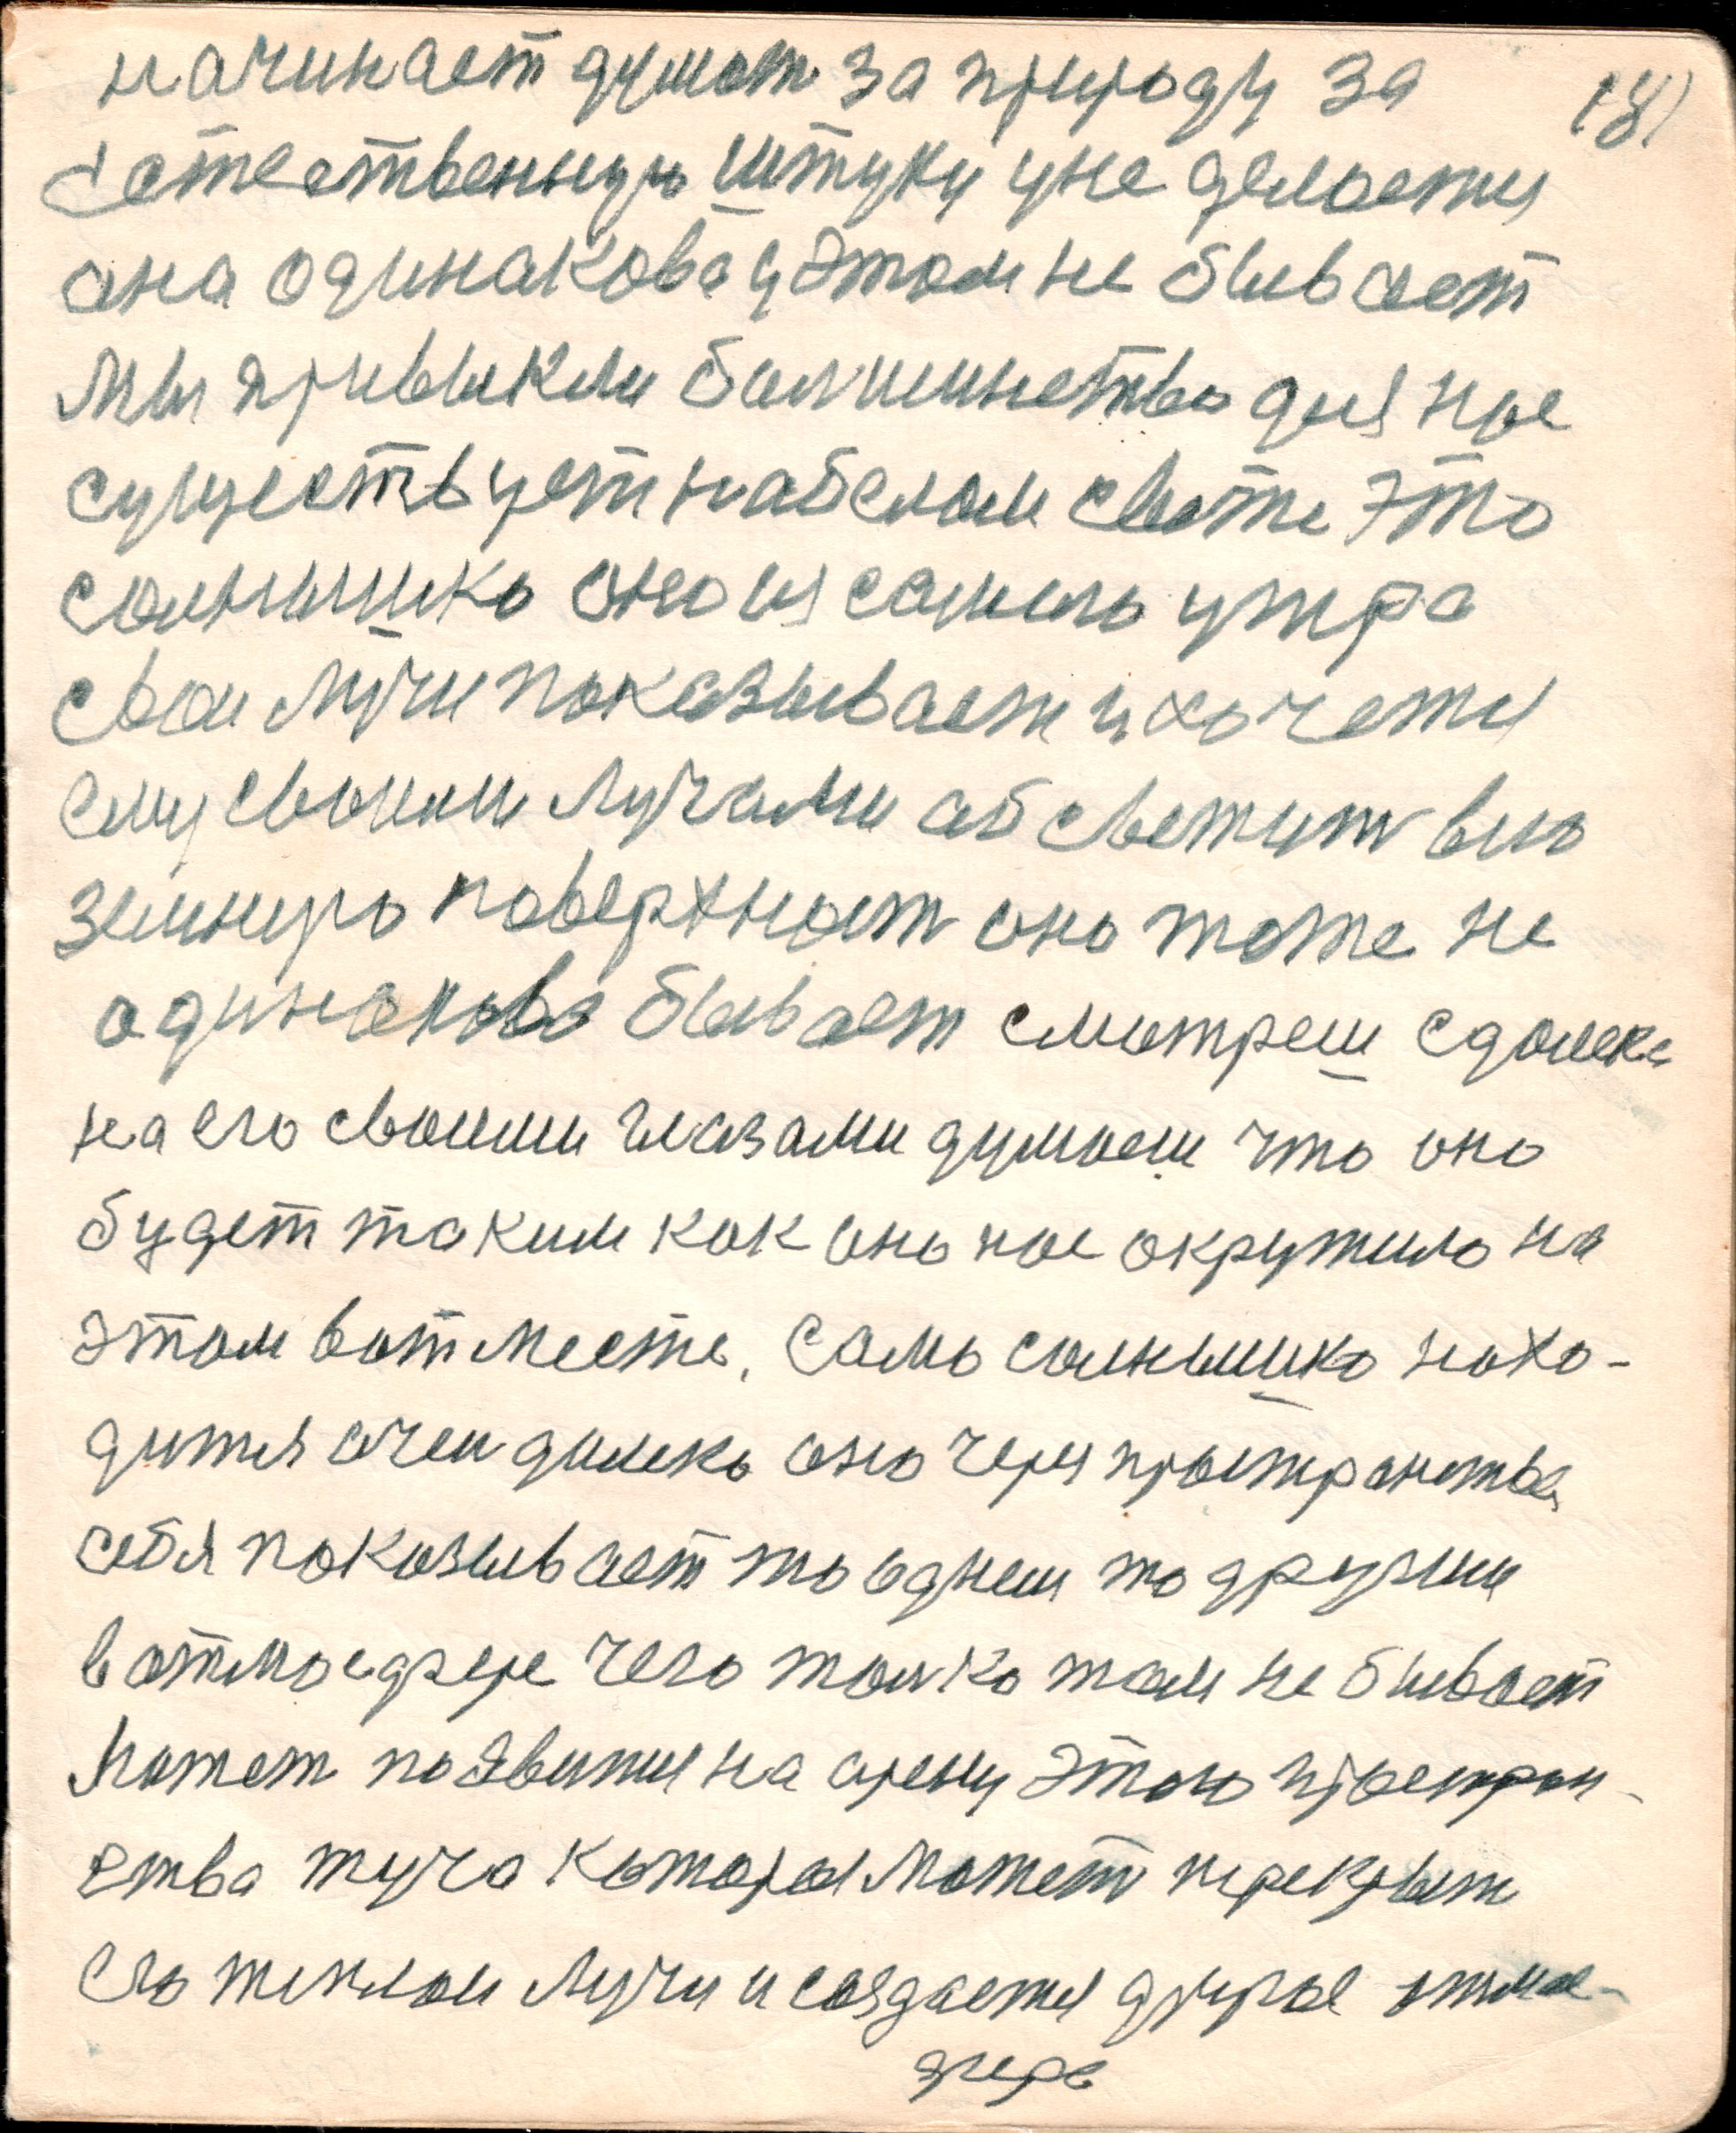 начинает думат за природу за 181
естественную штуку уне делаетця
она одинакова у этом не бывает
Мы привыкли балшинство для нас
существует на белом свете это
солнышко оно из самого утра
свои лучи показывает и хочетця
ему своими лучами абсветит всю
земную поверхност оно тоже не
одинаково бывает смотреш сдалека
на его своими глазами думаеш что оно
будет таким как оно нас окружило на
этом вот месте. Само солнышко нахо-
дитця очен далеко оно через пространства
себя показывает то одним то другим
в атмосфере чего толко там не бывает
Может появитця на арену этого простран-
ства туча которая может перекрыт
его теплои лучи и создаетця другая атмос-
фера